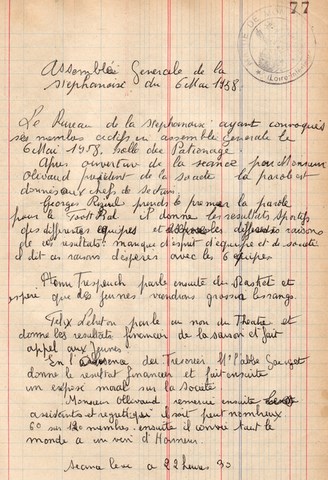 77
Assemblée Generale de la
stephanoise du 6 Mai 1958.
Le Bureau de la stephanoise ayant convoqué
ses membres actifs en assemblée generale le
6 Mai 1958, salle du Patronage.
Apres ouverture de la seance par Monsieur
Olivaud president de la societe la parole est
donnée aux chefs de section.
Georges prend le premier la parole
pour le Foot Bal il donne les resultats sportifs
des differentes equipes et les raisons
de ces resultats: manque d'esprit d'equipe et de societe
il dit ses raisons d'espérer avec les 6 equipes
Henri parle ensuite du Basket et
espere que des jeunes viendrons grossir les rangs.
Felix parle au non du Theatre et
donne les resultats financier de la saison et fait
appel aux jeunes.
En l'absence du Tresorier Mr l'abbé
donne le resultat financier et fait ensuite
un exposé moral sur la societe
Monsieur Ollivaud remercie ensuite les
assistants et qu'il soit peut nombreux
60 sur 120 membres ensuite il convie tout le
monde a un vin d'Honneur.
Seance levé a 22 heures 30